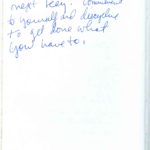 next key. Commitment
to yourself and discipline
to get done what
you have to.